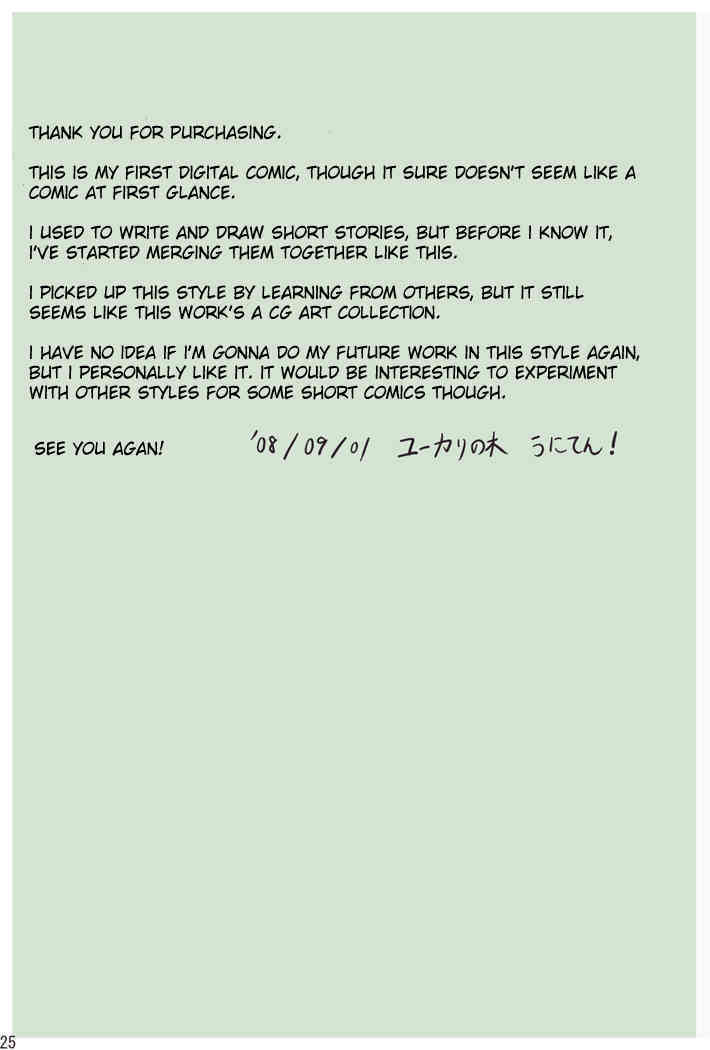 THANK YOU FOR PURCHASING.
THIS IS MY FIRST DIGITAL COMIC, THOUGH IT SURE DOESN'T SEEM LIKE A
COMIC AT FIRST GLANCE.
I USED TO WRITE AND DRAW SHORT STORIES, BUT BEFORE I KNOW IT,
I'VE STARTED MERGING THEM TOGETHER LIKE THIS.
I PICKED UP THIS STYLE BY LEARNING FROM OTHERS, BUT IT STILL
SEEMS LIKE THIS WORK'S A CG ART COLLECTION.
I HAVE NO IDEA IF I'M GONNA DO MY FUTURE WORK IN THIS STYLE AGAIN,
BUT I PERSONALLY LIKE IT. IT WOULD BE INTERESTING TO EXPERIMENT
WITH OTHER STYLES FOR SOME SHORT COMICS THOUGH.
SEE YOU AGAN! '08/09/01 ユーカリの木 うにてん!
25